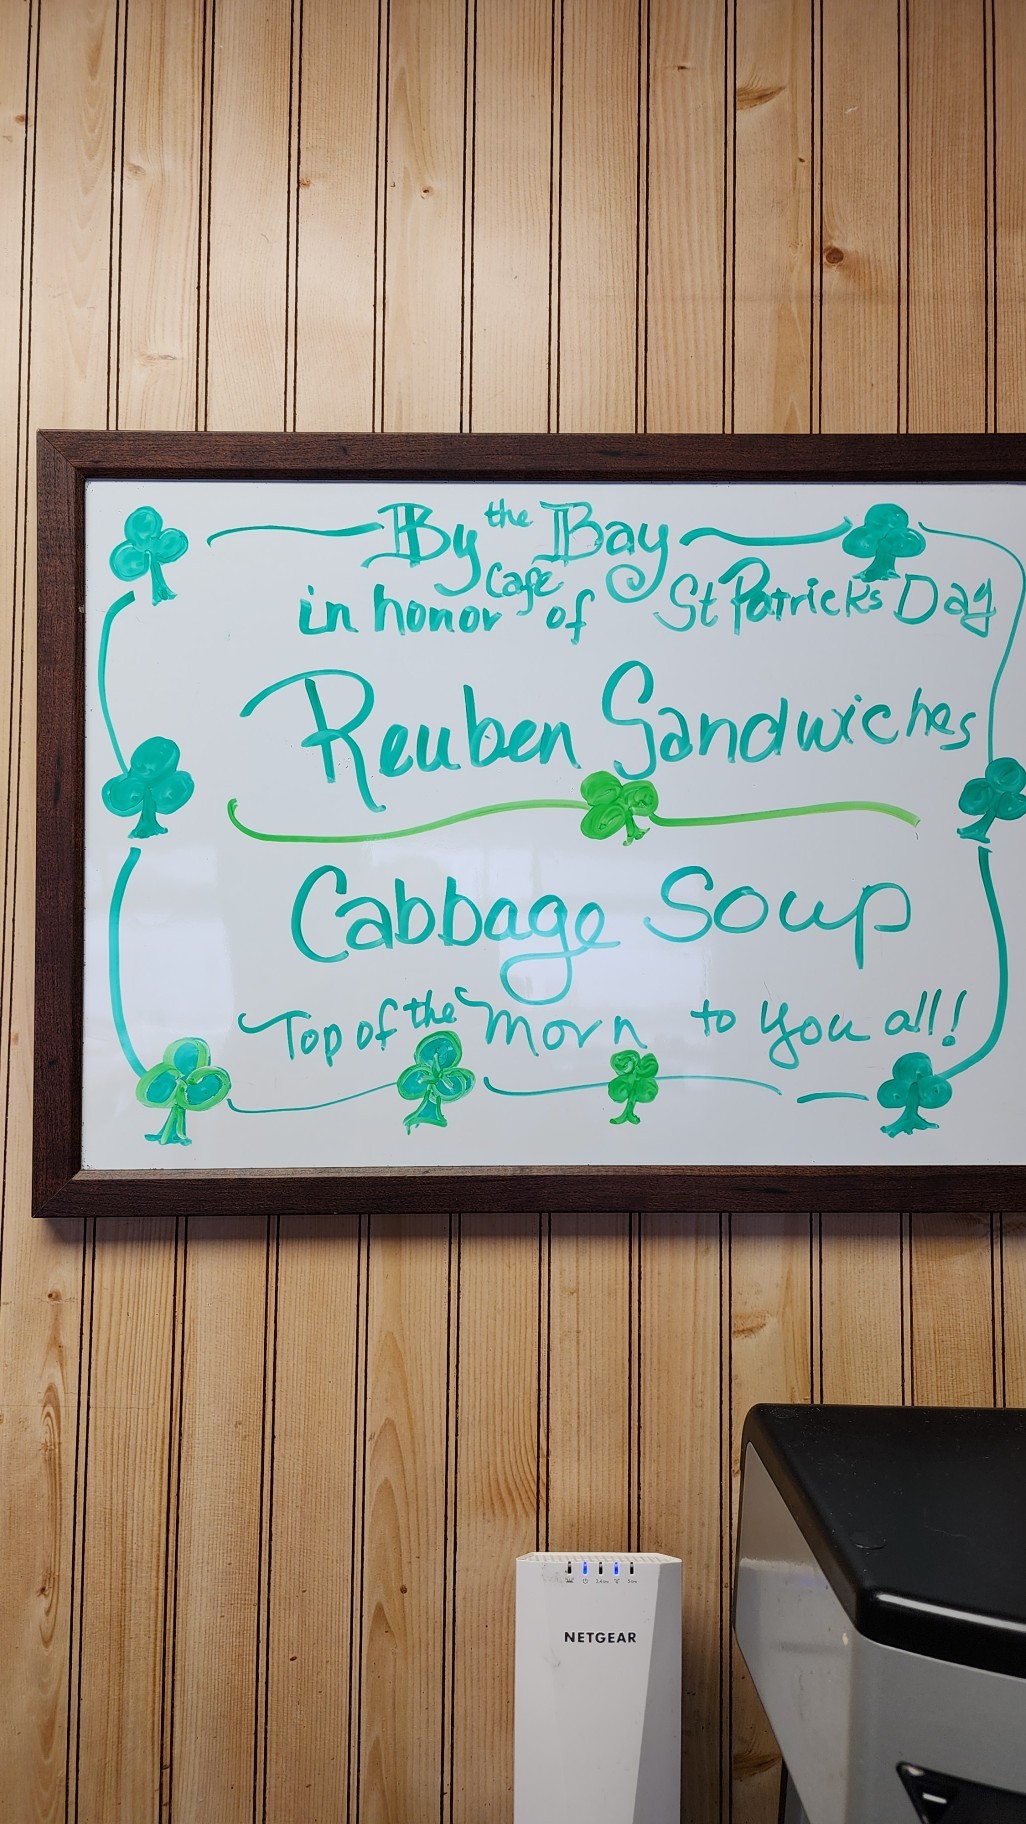 By the Bay
Cafe
in honor of St Patricks Day
Reuben Sandwiches
Cabbage Soup
Top of the Morn to you all!
NETGEAR